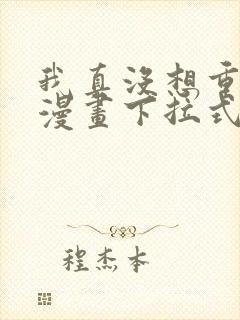 我真沒想重
漫畫下拉式
程杰本